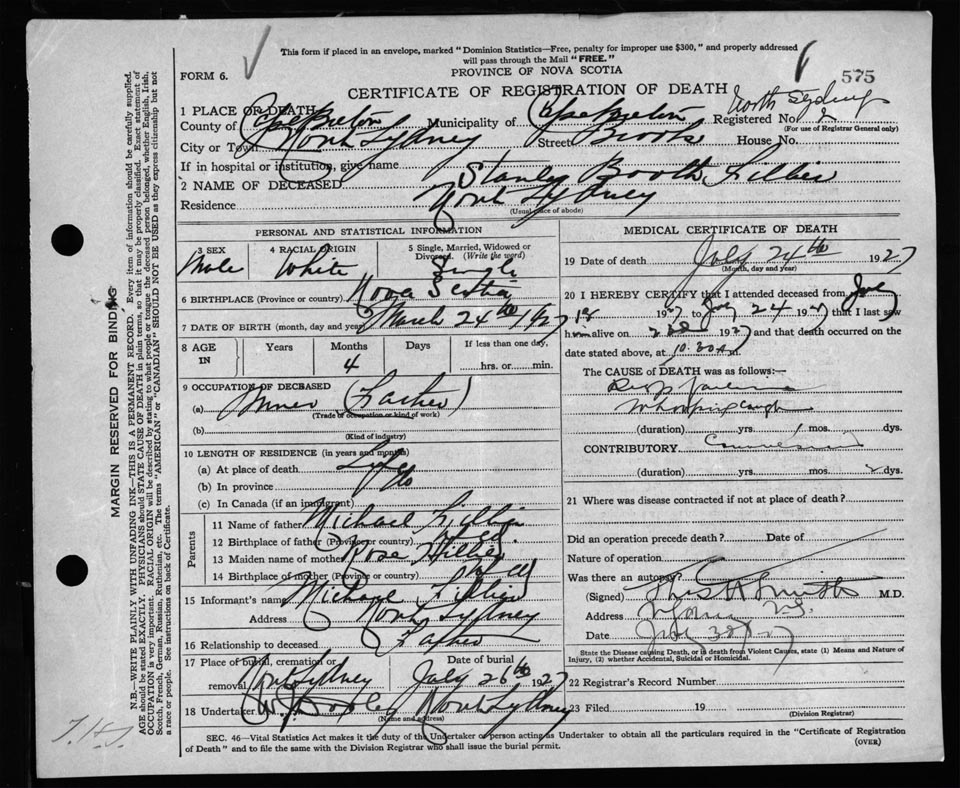 This form if placed in an envelope, marked "Dominion Statistics—Free, penalty for improper use $300," and properly addressed
will pass through the Mail "FREE."
FORM 6.
PROVINCE OF NOVA SCOTIA
575
CERTIFICATE OF REGISTRATION OF DEATH
North Sydney
1 PLACE OF DEATH
County of Cape Breton Municipality of Cape Breton Registered No. 2
(For use of Registrar General only)
City or Town North Sydney Street Brooks House No.
If in hospital or institution, give name
2 NAME OF DECEASED Stanley Booth Lillies
Residence North Sydney
(Usual place of abode)
PERSONAL AND STATISTICAL INFORMATION
3 SEX 4 RACIAL ORIGIN 5 Single, Married, Widowed or Divorced. (Write the word)
Male White Single
6 BIRTHPLACE (Province or country) Nova Scotia
7 DATE OF BIRTH (month, day and year) March 24th 1927
8 AGE IN Years Months Days If less than one day,
4 hrs. or min.
9 OCCUPATION OF DECEASED
(a) Miner (Father)
(Trade of occupation or kind of work)
(b)
(Kind of industry)
10 LENGTH OF RESIDENCE (in years and months)
(a) At place of death Life
(b) In province do
(c) In Canada (if an immigrant)
Parents
11 Name of father Michael Lillies
12 Birthplace of father (Province or country) Nfld
13 Maiden name of mother Rose Hillier
14 Birthplace of mother (Province or country) Nfld
15 Informant's name Michael Lillies
Address North Sydney
16 Relationship to deceased Father
17 Place of burial, cremation or removal North Sydney Date of burial July 26th 1927
18 Undertaker North Sydney
(Name and address)
MEDICAL CERTIFICATE OF DEATH
19 Date of death July 24th 1927
(Month, day and year)
20 I HEREBY CERTIFY that I attended deceased from July
1st 1927 to July 24 1927 that I last saw
him alive on 1927 and that death occurred on the
date stated above, at 10.30 A.m.
The CAUSE of DEATH was as follows:—
Whooping Cough
(duration) yrs. 1 mos. dys.
CONTRIBUTORY
(duration) yrs. mos. 2 dys.
21 Where was disease contracted if not at place of death?
Did an operation precede death? Date of
Nature of operation
Was there an autopsy?
(Signed) Smith M.D.
Address N.S.
Date July
State the Disease causing Death, or is death from Violent Causes, state (1) Means and Nature of
Injury, (2) whether Accidental, Suicidal or Homicidal.
22 Registrar's Record Number
23 Filed 19
(Division Registrar)
SEC. 46—Vital Statistics Act makes it the duty of the Undertaker or person acting as Undertaker to obtain all the particulars required in the "Certificate of Registration
of Death" and to file the same with the Division Registrar who shall issue the burial permit. (OVER)
MARGIN RESERVED FOR BINDING
N.B.—WRITE PLAINLY WITH UNFADING INK—THIS IS A PERMANENT RECORD. Every item of information should be carefully supplied.
AGE should be stated EXACTLY. PHYSICIANS should STATE CAUSE OF DEATH in plain terms, so that it may be properly classified. Exact statement of
OCCUPATION is very important. RACIAL ORIGIN will be described by stating to what people or tongue the deceased person belonged, whether English, Irish,
Scotch, French, German, Russian, Ruthenian, etc. The terms "AMERICAN" or "CANADIAN" SHOULD NOT BE USED as they express citizenship but not
a race or people. See instructions on back of Certificate.